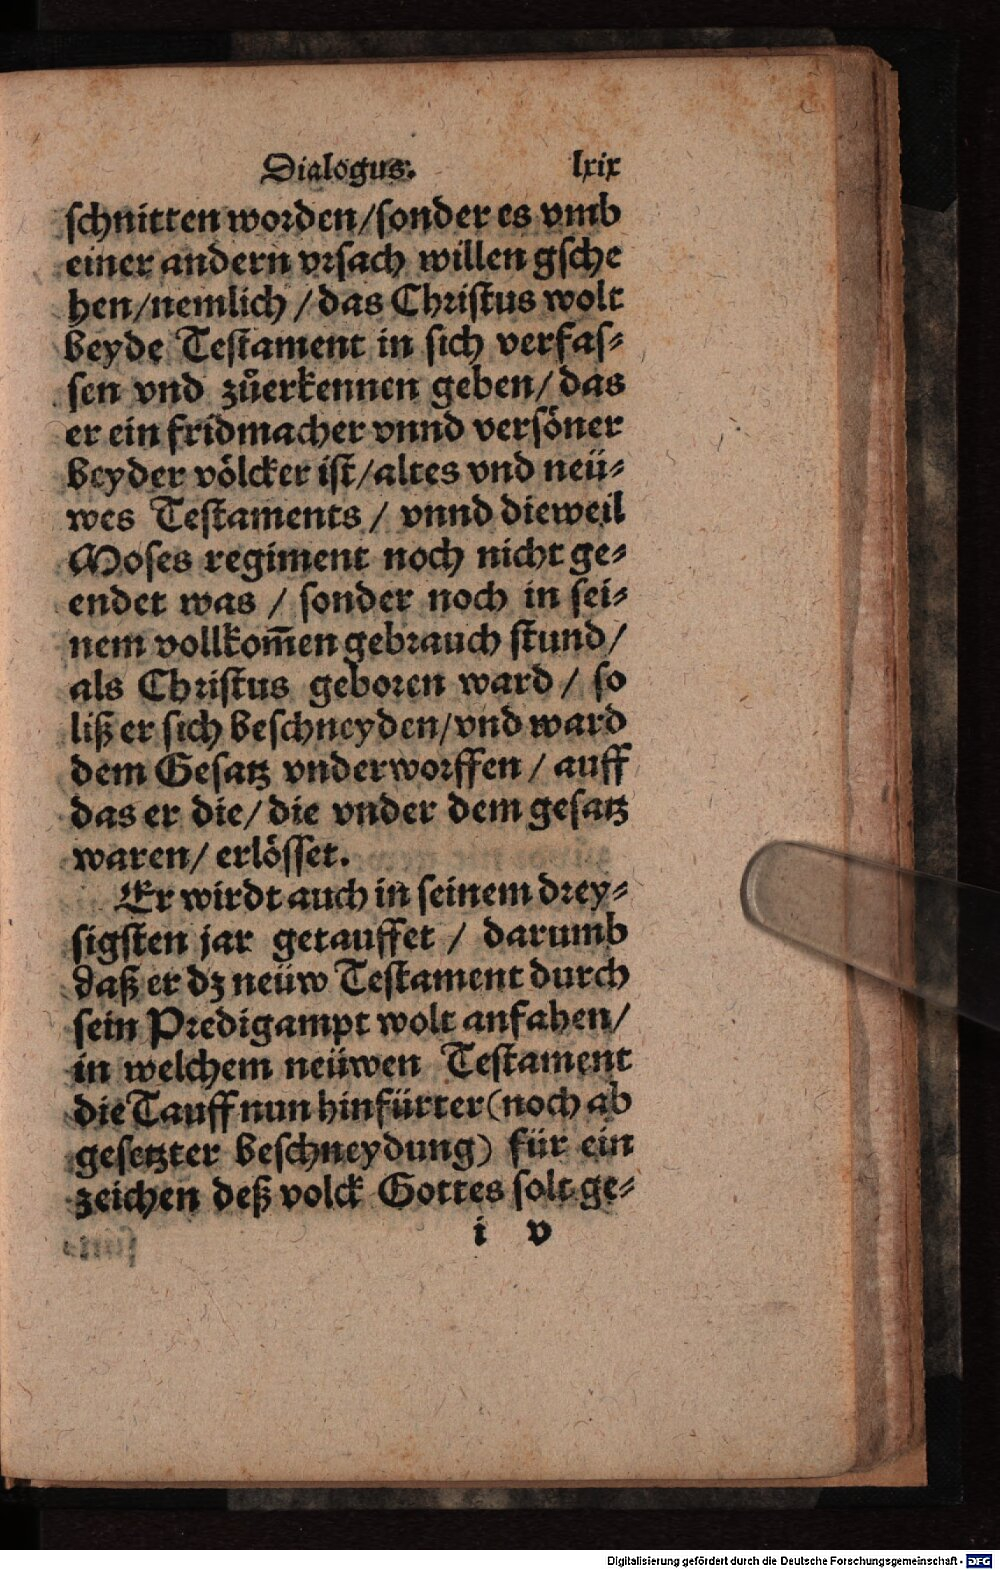 Dialogus. lxix
schnitten worden/sonder es vmb
einer andern vrsach willen gsche
hen/nemlich /das Christus wolt
beyde Testament in sich verfas⸗
sen vnd zůerkennen geben/das
er ein fridmacher vnnd versöner
beyder völcker ist/altes vnd neü⸗
wes Testaments / vnnd dieweil
Moses regiment noch nicht ge⸗
endet was / sonder noch in sei⸗
nem vollkom̄en gebrauch stund/
als Christus geboren ward / so
liß er sich beschneyden/vnd ward
dem Gesatz vnderworffen / auff
das er die/die vnder dem gesatz
waren/ erlösset.
Er wirdt auch in seinem drey⸗
sigsten jar getauffet / darumb
daß er dz neüw Testament durch
sein Predigampt wolt anfahen/
in welchem neüwen Testament
die Tauff nun hinfürter(noch ab
gesetzter beschneydung) für ein
zeichen deß volck Gottes solt ge⸗
i v
Digitalisierung gefördert durch die Deutsche Forschungsgemeinschaft - DFG